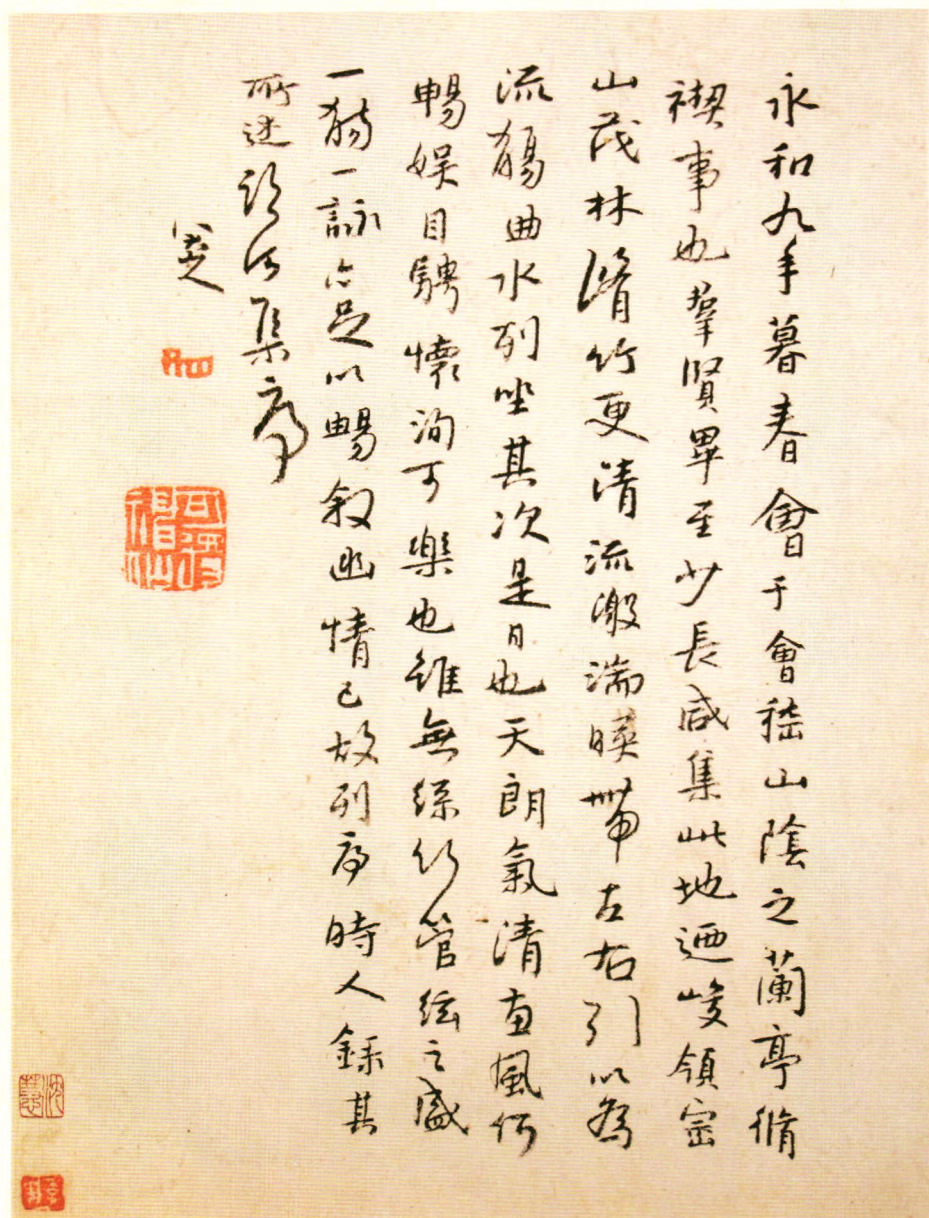 永和九年暮春會于會稽山陰之蘭亭脩
禊事也羣賢畢至少長咸集此地迺峻領崇
山茂林脩竹更清流激湍暎帶左右引以為
流觴曲水列坐其次是日也天朗氣清惠風何
暢娛目騁懷洵可樂也雖無絲竹管絃之盛
一觴一詠亦足以暢敘幽情已故列序時人錄其
所述臨河集序
八大山人
可得神仙